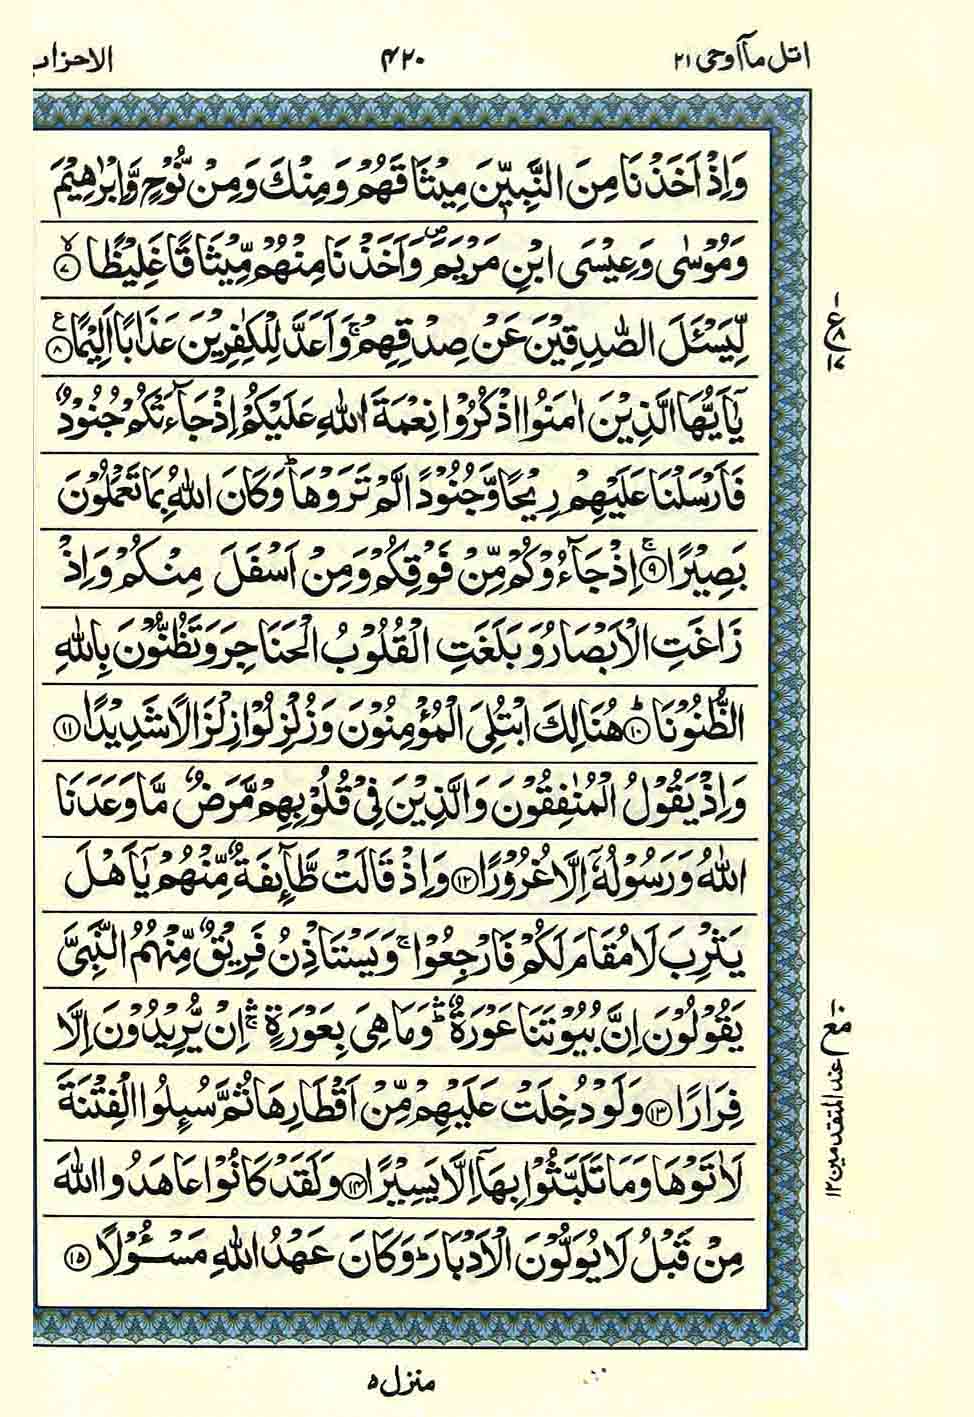 اتل مآ اوحی ۲۱
۴۲۰
الاحزاب
وَاِذْ اَخَذْنَا مِنَ النَّبِيّٖنَ مِيْثَاقَهُمْ وَمِنْكَ وَمِنْ نُّوْحٍ وَّاِبْرٰهِيْمَ
وَمُوْسٰى وَعِيْسَى ابْنِ مَرْيَمَ ۪ وَاَخَذْنَا مِنْهُمْ مِّيْثَاقًا غَلِيْظًا ۙ۷
لِّيَسْـَٔلَ الصّٰدِقِيْنَ عَنْ صِدْقِهِمْ ۚ وَاَعَدَّ لِلْكٰفِرِيْنَ عَذَابًا اَلِيْمًا ۸ ع
يٰۤاَيُّهَا الَّذِيْنَ اٰمَنُوا اذْكُرُوْا نِعْمَةَ اللّٰهِ عَلَيْكُمْ اِذْ جَآءَتْكُمْ جُنُوْدٌ
فَاَرْسَلْنَا عَلَيْهِمْ رِيْحًا وَّجُنُوْدًا لَّمْ تَرَوْهَا ؕ وَكَانَ اللّٰهُ بِمَا تَعْمَلُوْنَ
بَصِيْرًا ۚ۹ اِذْ جَآءُوْكُمْ مِّنْ فَوْقِكُمْ وَمِنْ اَسْفَلَ مِنْكُمْ وَاِذْ
زَاغَتِ الْاَبْصَارُ وَبَلَغَتِ الْقُلُوْبُ الْحَنَاجِرَ وَتَظُنُّوْنَ بِاللّٰهِ
الظُّنُوْنَا ؕ۱۰ هُنَالِكَ ابْتُلِيَ الْمُؤْمِنُوْنَ وَزُلْزِلُوْا زِلْزَالًا شَدِيْدًا ۱۱
وَاِذْ يَقُوْلُ الْمُنٰفِقُوْنَ وَالَّذِيْنَ فِيْ قُلُوْبِهِمْ مَّرَضٌ مَّا وَعَدَنَا
اللّٰهُ وَرَسُوْلُهٗۤ اِلَّا غُرُوْرًا ۱۲ وَاِذْ قَالَتْ طَّآئِفَةٌ مِّنْهُمْ يٰۤاَهْلَ
يَثْرِبَ لَا مُقَامَ لَكُمْ فَارْجِعُوْا ۚ وَيَسْتَاْذِنُ فَرِيْقٌ مِّنْهُمُ النَّبِيَّ
يَقُوْلُوْنَ اِنَّ بُيُوْتَنَا عَوْرَةٌ ۛؕ وَمَا هِيَ بِعَوْرَةٍ ۛۚ اِنْ يُّرِيْدُوْنَ اِلَّا
فِرَارًا ۱۳ وَلَوْ دُخِلَتْ عَلَيْهِمْ مِّنْ اَقْطَارِهَا ثُمَّ سُىِٕلُوا الْفِتْنَةَ
لَاٰتَوْهَا وَمَا تَلَبَّثُوْا بِهَاۤ اِلَّا يَسِيْرًا ۱۴ وَلَقَدْ كَانُوْا عَاهَدُوا اللّٰهَ
مِنْ قَبْلُ لَا يُوَلُّوْنَ الْاَدْبَارَ ؕ وَكَانَ عَهْدُ اللّٰهِ مَسْـُٔوْلًا ۱۵
ع ۸
مع عند المتقدمین ۱۲
منزل ۵